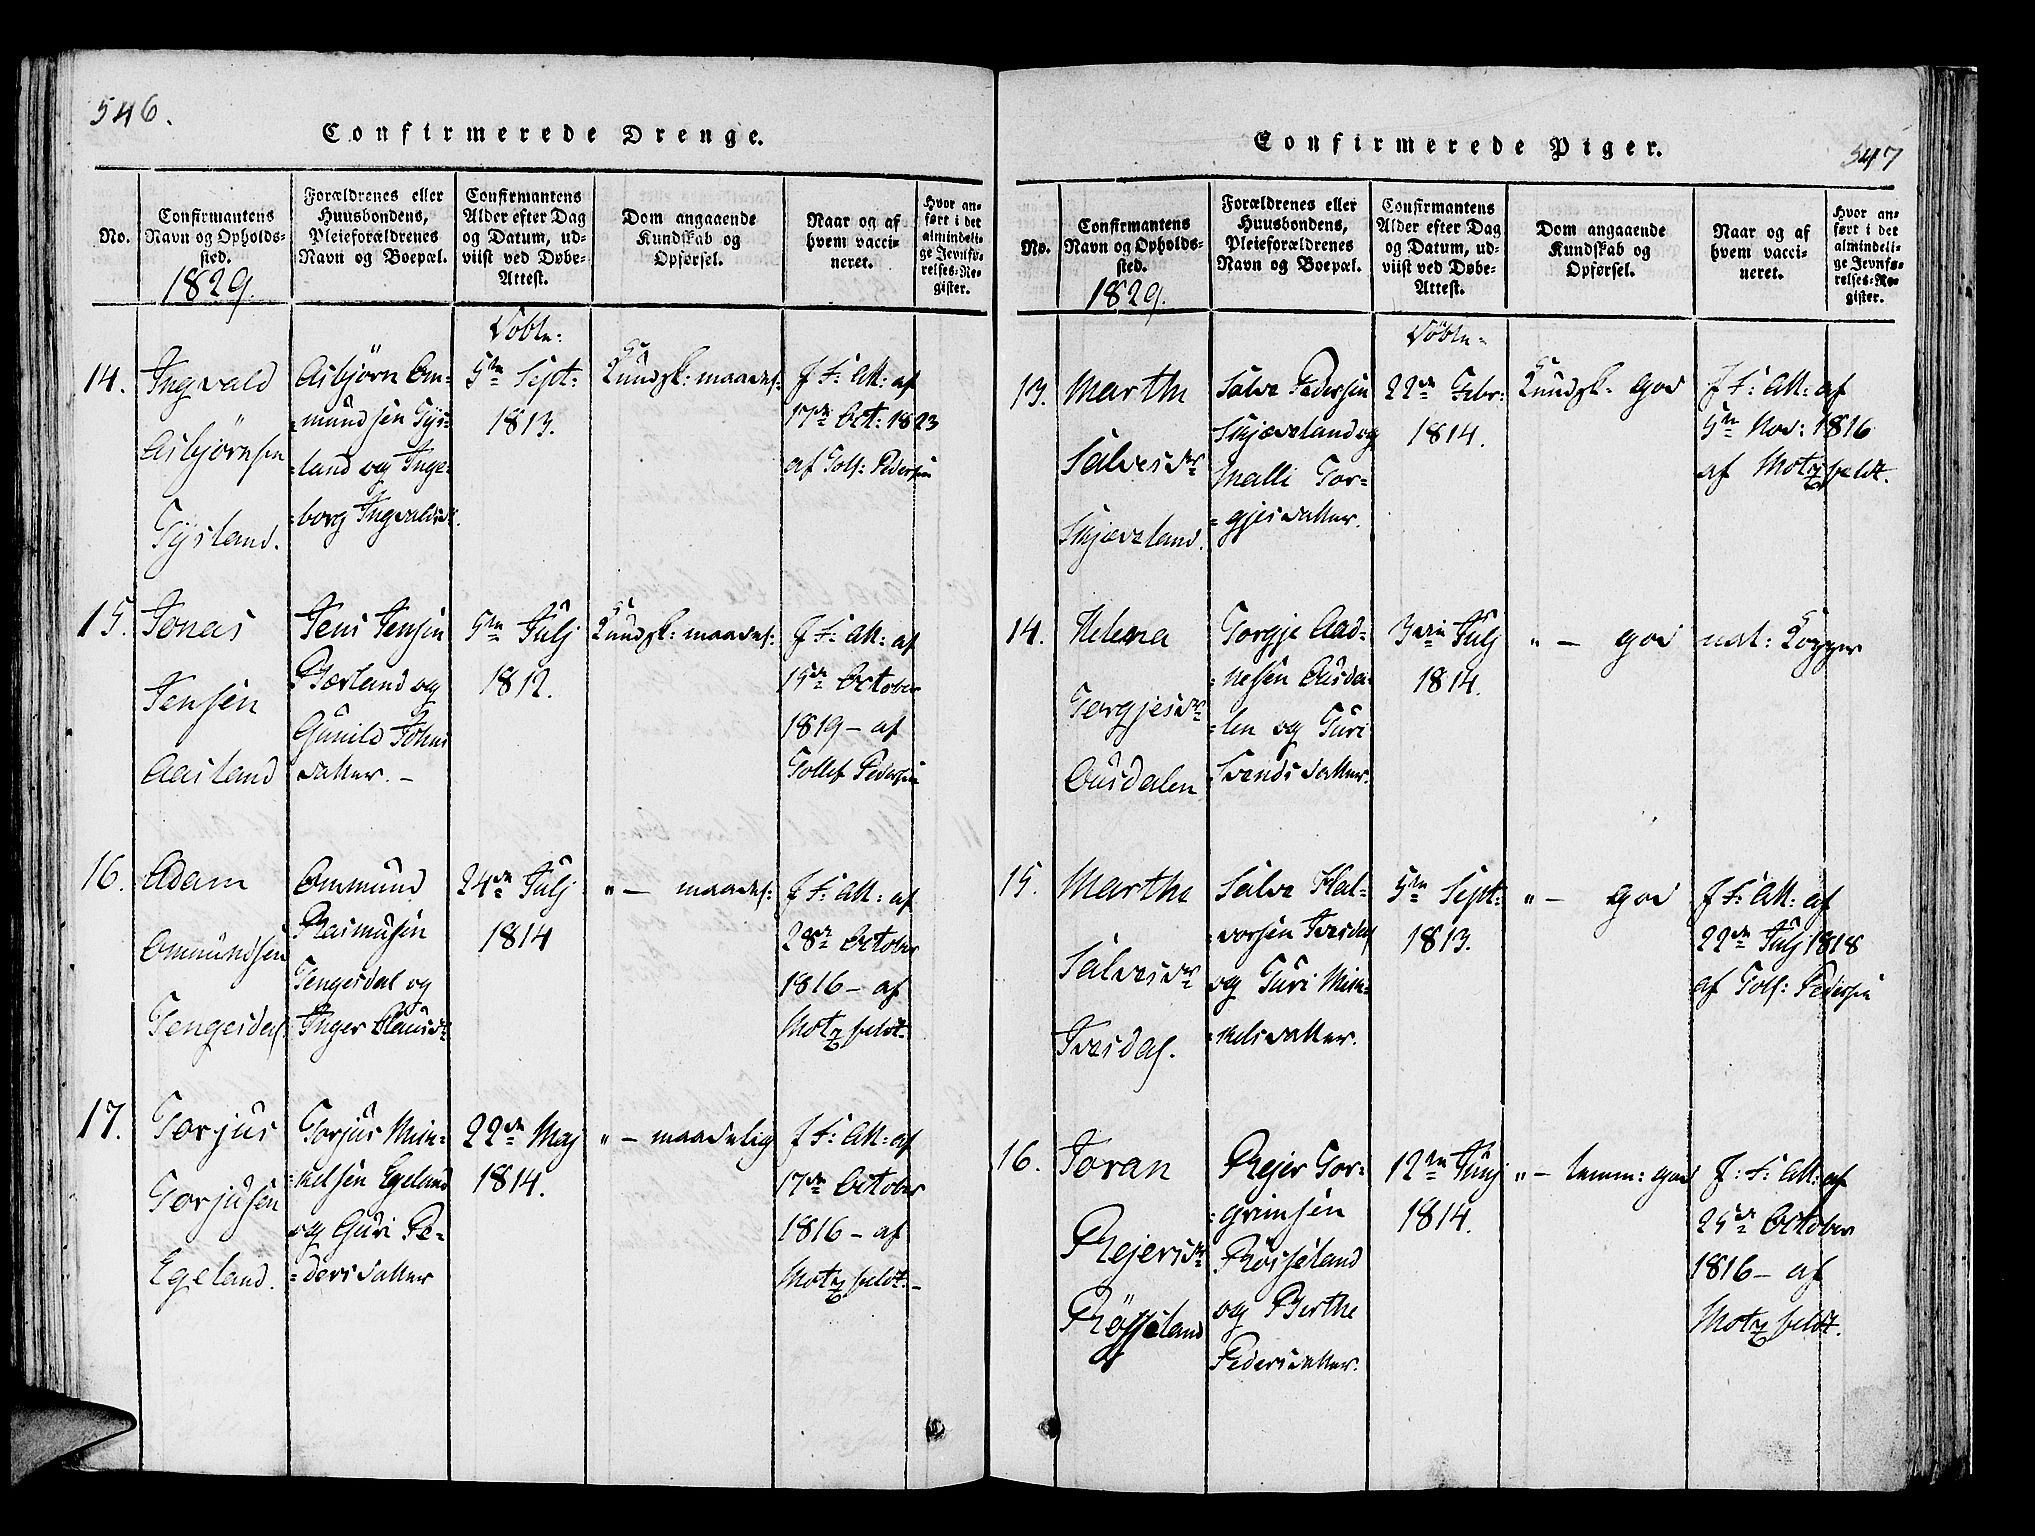 546.
Confirmerede Drenge.
No.
Confirmantens
Navn og Opholds-
sted.
1829.
Forældrenes eller
Huusbondens,
Pleieforældrenes
Navn og Boepæl.
Confirmantens
Alder efter Dag
og Datum, ud-
viist ved Døbe-
Attest.
Dom angaaende
Kundskab og
Opførsel.
Naar og af
hvem vacci-
neret.
Hvor an-
ført i det
almindeli-
ge Jevnfø-
relses-Re-
gister.
14.
Ingvald
Asbjørnsen
Tÿsland.
Asbjørn Om-
=mundsen Tÿs-
=land og Inge-
=borg Ingvaldsd.
Döbte:
5te Sept:
1813.
Kundsk: maadel:
f. F: Att: af
17de Oct: 1823
af Tolf: Pedersen
15.
Jonas
Jensen
Aasland
Jens Jensen
Bærland og
Gunild Johns
datter. -
5te Julj
1812.
Kundsk: maadel:
f. F: Att: af
15de October
1819 - af
Tollef Pedersen
16.
Adam
Ommundsen
Tengesdal
Ommund
Rasmusen
Tengesdal og
Inger Clausd:
24de Julj
1814
" - maadel:
f. F: Att: af
28de October
1816 - af
Motzfeldt.
17.
Torjus
Torjusen
Egeland.
Torjus Mik-
=kelsen Egeland
og Guri Pe-
=dersdatter
22de Maj
1814.
" - maadelig
f. F: Att: af
17de October
1816 - af
Motzfeldt. -
Confirmerede Piger.
547
No.
Confirmantens
Navn og Opholds-
sted.
1829.
Forældrenes eller
Huusbondens,
Pleieforældrenes
Navn og Boepæl.
Confirmantens
Alder efter Dag
og Datum, ud-
viist ved Døbe-
Attest.
Dom angaaende
Kundskab og
Opførsel.
Naar og af
hvem vacci-
neret.
Hvor an-
ført i det
almindeli-
ge Jevnfø-
relses-Re-
gister.
13.
Martha
Salvesdr
Skjæveland.
Salve Pedersen
Skjæveland og
Malli Tor-
=gjesdatter.
Döbte:
22de Febr:
1814.
Kundsk: god
f. F: Att: af
5te Nov: 1816
af Motzfeldt.
14.
Helena
Torgjesdr
Ousdalen
Torgje Aad-
=nesen Ousda-
=len og Guri
Svendsdatter.
3die Julj
1814.
" - god
nat: Kopper
15.
Martha
Salvesdr
Ivesdal.
Salve Hal-
=vorsen Ivesdal
og Guri Mik-
=kelsdatter.
5te Sept:
1813.
" - god
f. F: Att: af
22de Julj 1818
af Tolf: Pedersen
16.
Joran
Rejersdr
Røsseland
Rejer Tor-
=grimsen
Røsseland
og Berthe
Pedersdatter.
12te Junj
1814.
" - temm: god
f: F: Att: af
25de October
1816 - af
Motzfeldt.